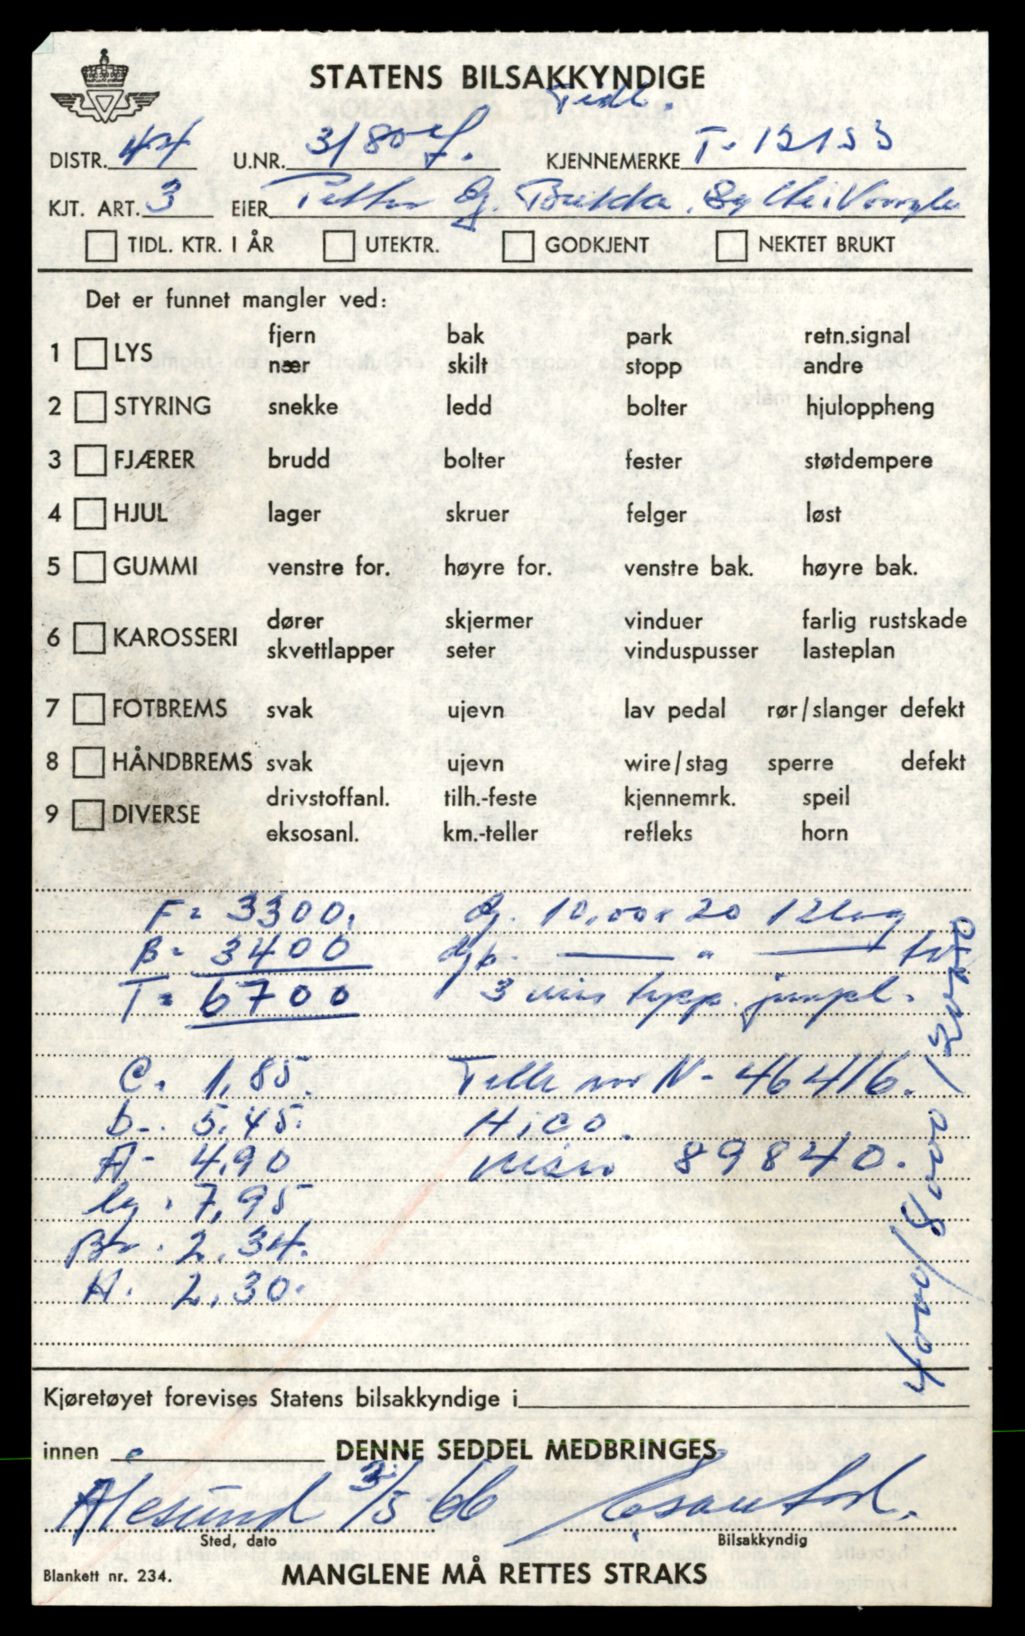 STATENS BILSAKKYNDIGE
DISTR. 44 U.NR. 3/80 KJENNEMERKE T- 12153
KJT. ART. 3 EIER Petter
TIDL. KTR. I ÅR UTEKTR. GODKJENT NEKTET BRUKT
Det er funnet mangler ved:
fjern bak park retn.signal
1 LYS
nær skilt stopp andre
2 STYRING snekke ledd bolter hjuloppheng
3 FJÆRER brudd bolter fester støtdempere
4 HJUL lager skruer felger løst
5 GUMMI venstre for. høyre for. venstre bak. høyre bak.
dører skjermer vinduer farlig rustskade
6 KAROSSERI
skvettlapper seter vinduspusser lasteplan
7 FOTBREMS svak ujevn lav pedal rør/slanger defekt
8 HÅNDBREMS svak ujevn wire/stag sperre defekt
drivstoffanl. tilh.-feste kjennemrk. speil
9 DIVERSE
eksosanl. km.-teller refleks horn
F= 3300. 10,00x20 12lag
B= 3400 "
T= 6700 3
C. 1,85. N- 46416.
b-. 5.45. Hico.
A- 4,90 89840.
lg. 7,95
Br. 2.34.
H. 2,30.
4000/8000/12000
Kjøretøyet forevises Statens bilsakkyndige i
innen DENNE SEDDEL MEDBRINGES
Ålesund 3/5 66
Sted, dato Bilsakkyndig
Blankett nr. 234. MANGLENE MÅ RETTES STRAKS